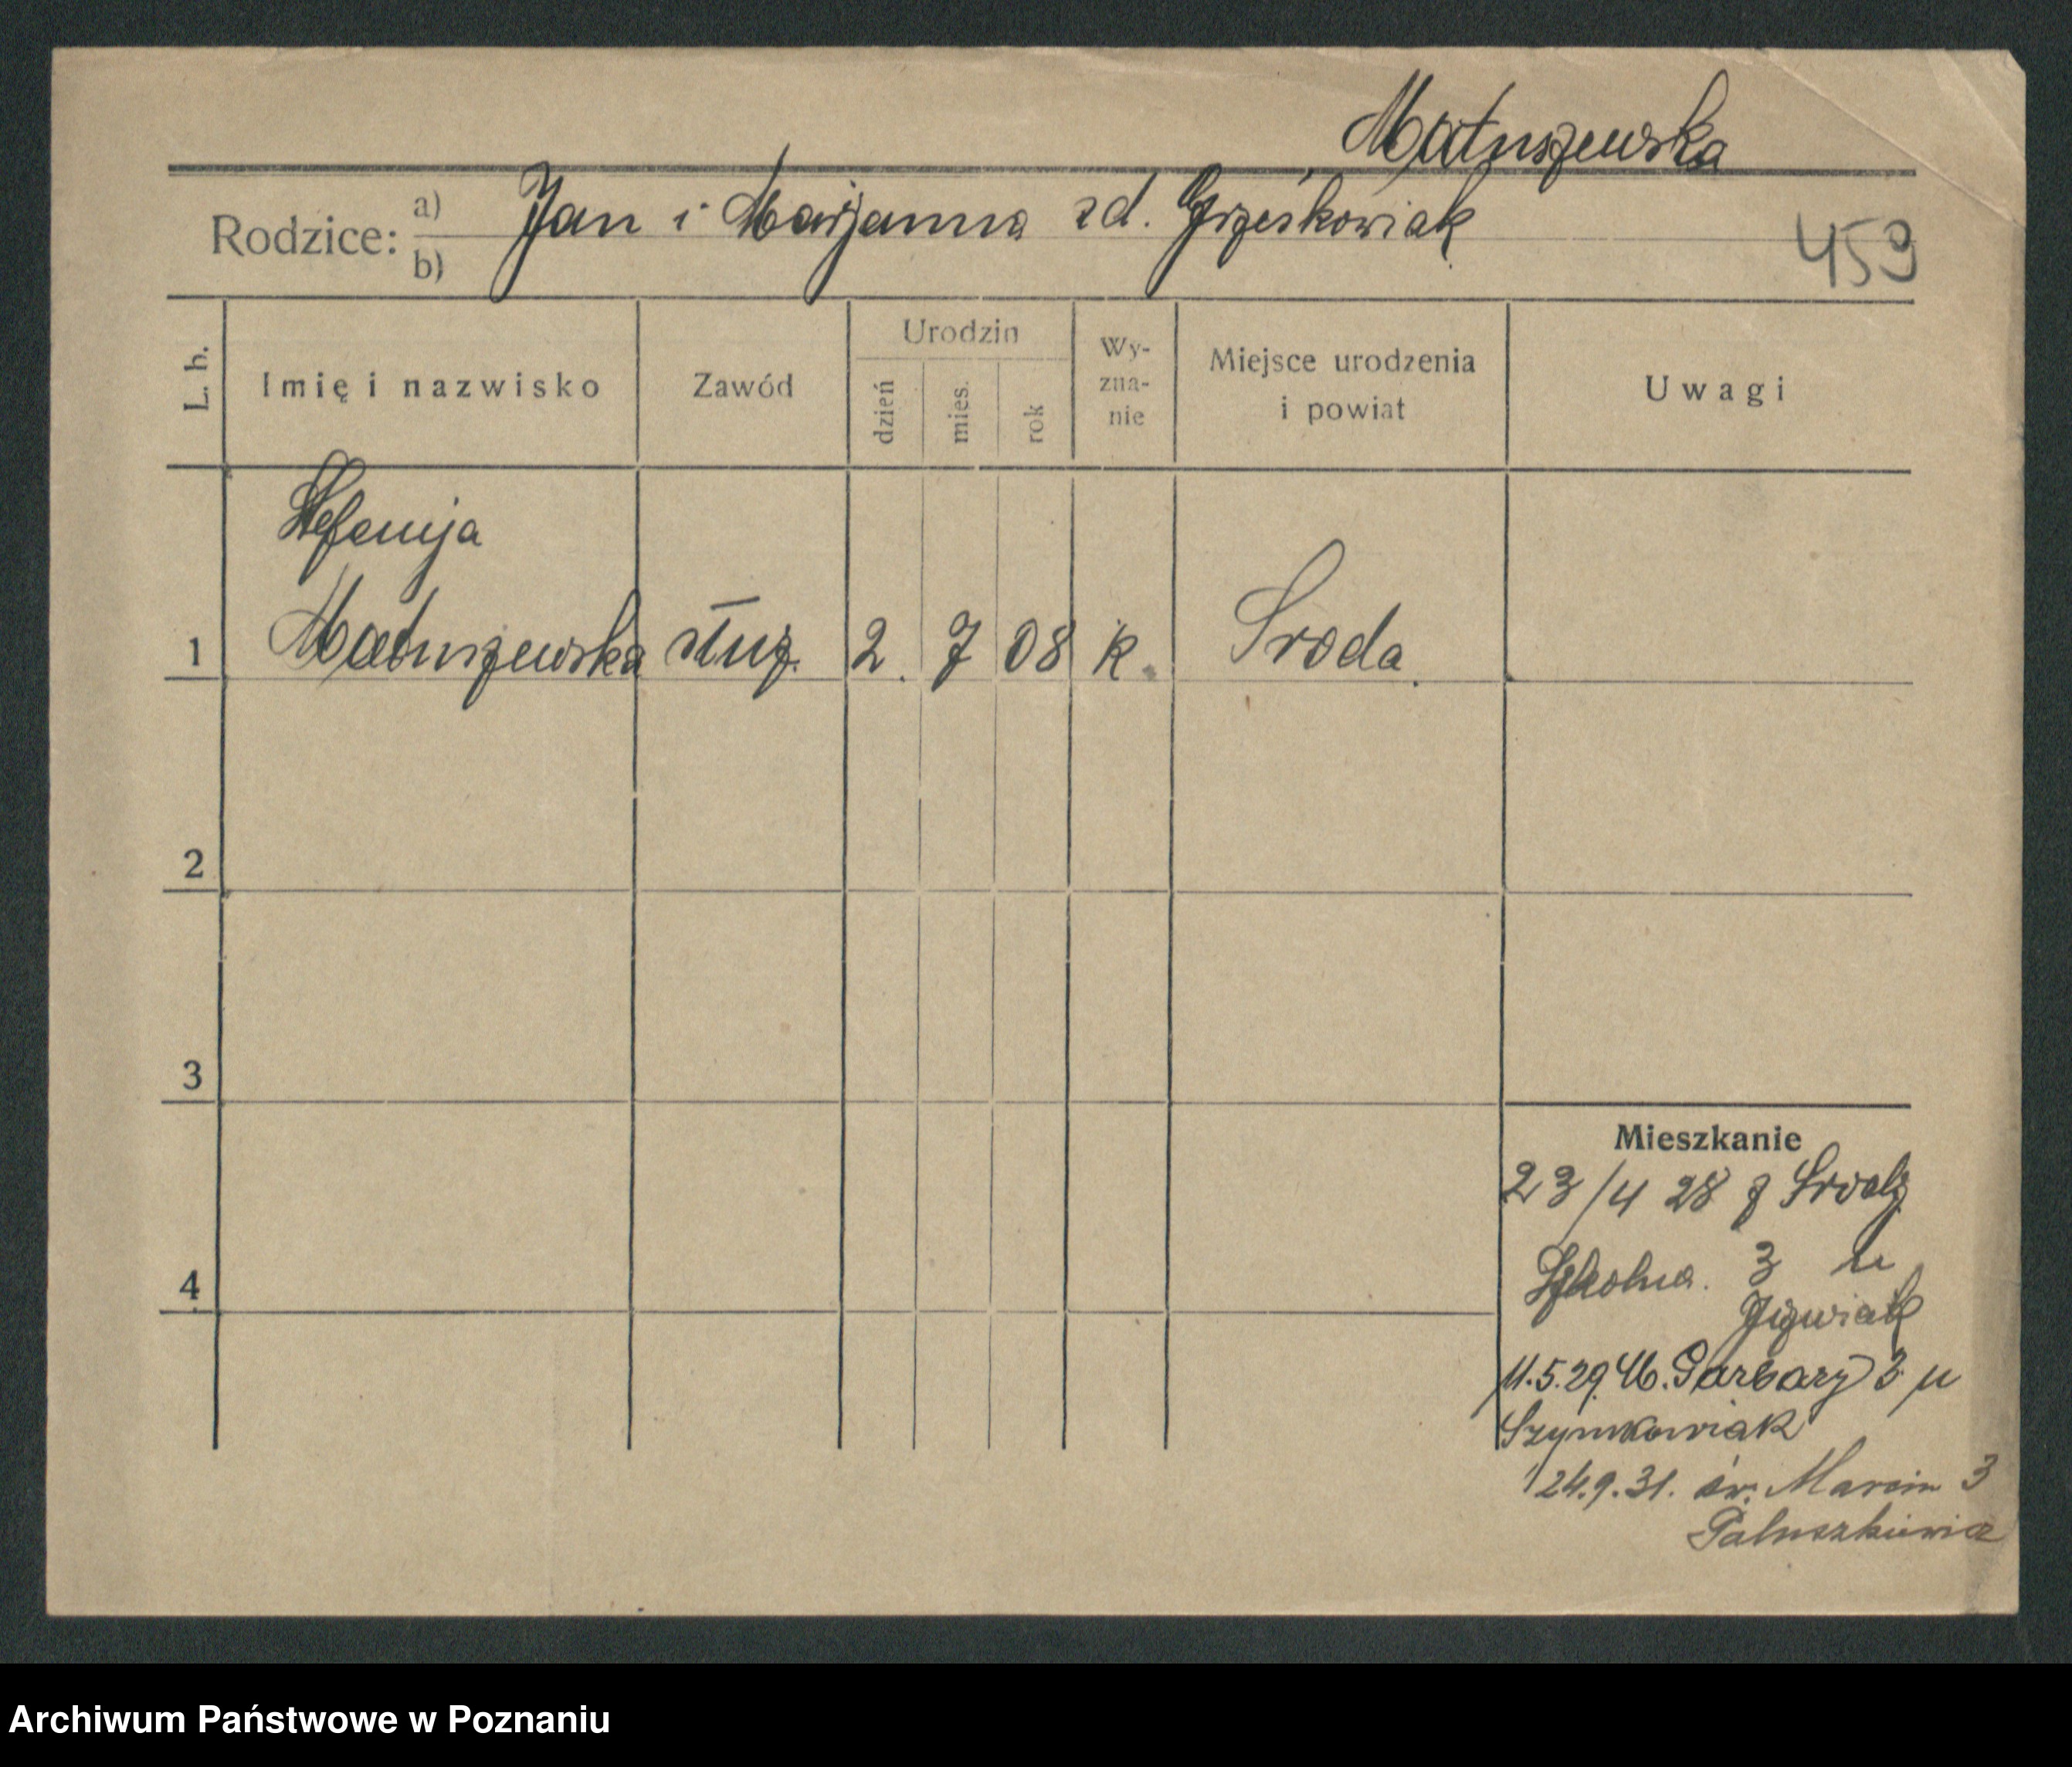 Matuszewska
Rodzice: a) b) Jan i Marjanna zd. Grześkowiak
459
L. b. Imię i nazwisko Zawód Urodzin dzień mies. rok Wy-zna-nie Miejsce urodzenia i powiat Uwagi
Stefanja
1 Matuszewska służ. 2. 7 08 k. Sroda.
2
3
Mieszkanie
23/4 28 z Srody
Szkolna. 3 u
4
Jóźwiak
11.5.29. W. Garbary 3 u
Szymkowiak
24.9.31. św. Marcin 3
Paluszkiewicz
Archiwum Państwowe w Poznaniu